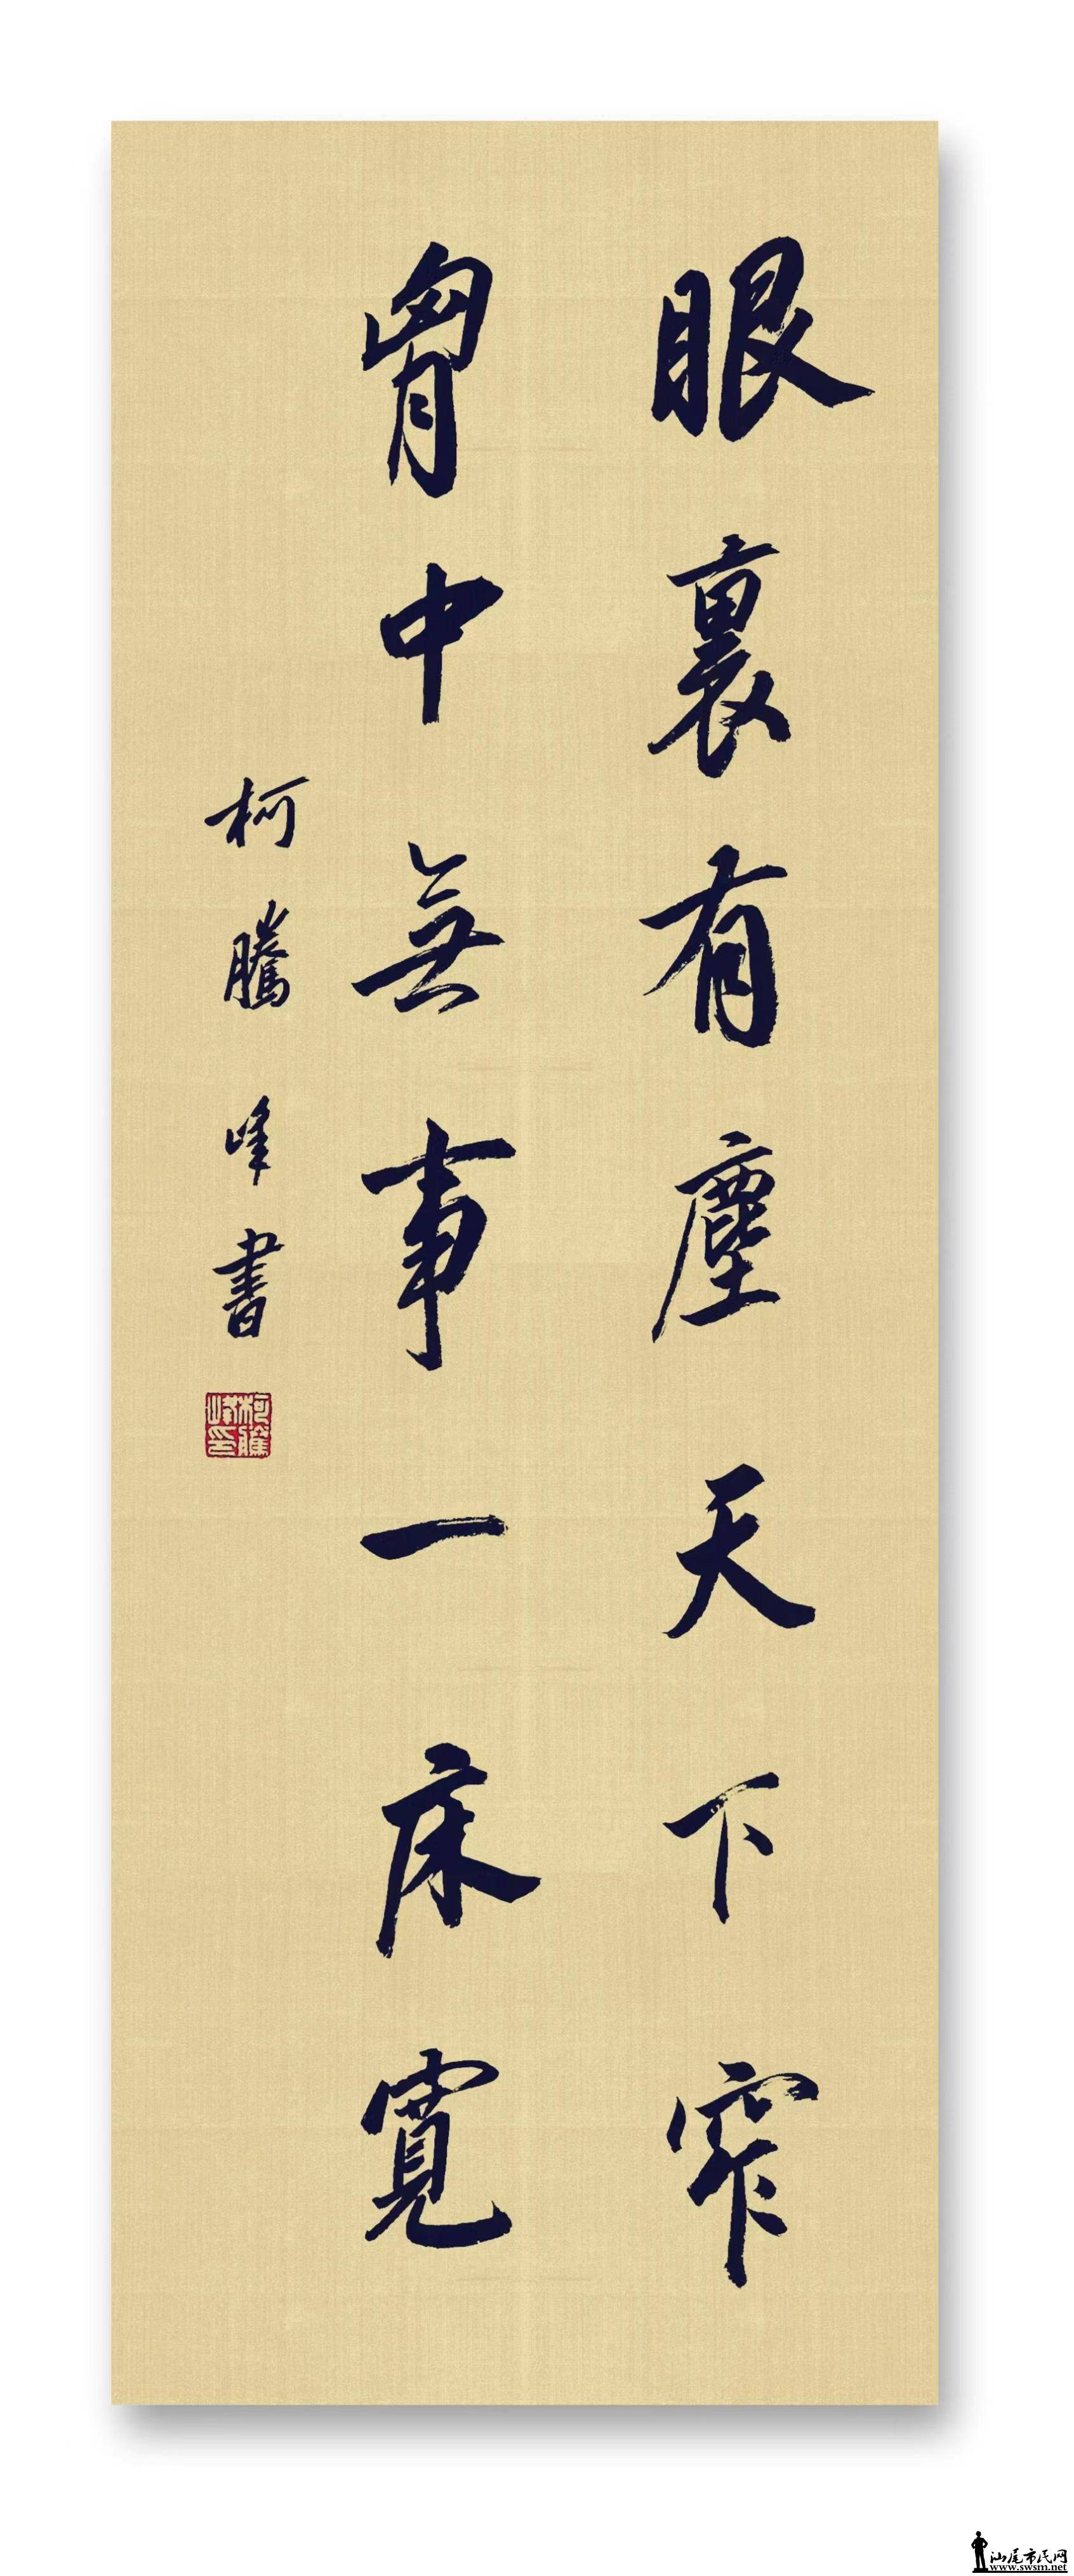 眼裏有塵天下窄
胷中無事一床寬
柯騰峰書
柯騰峰印
汕尾市民网
www.swsm.net